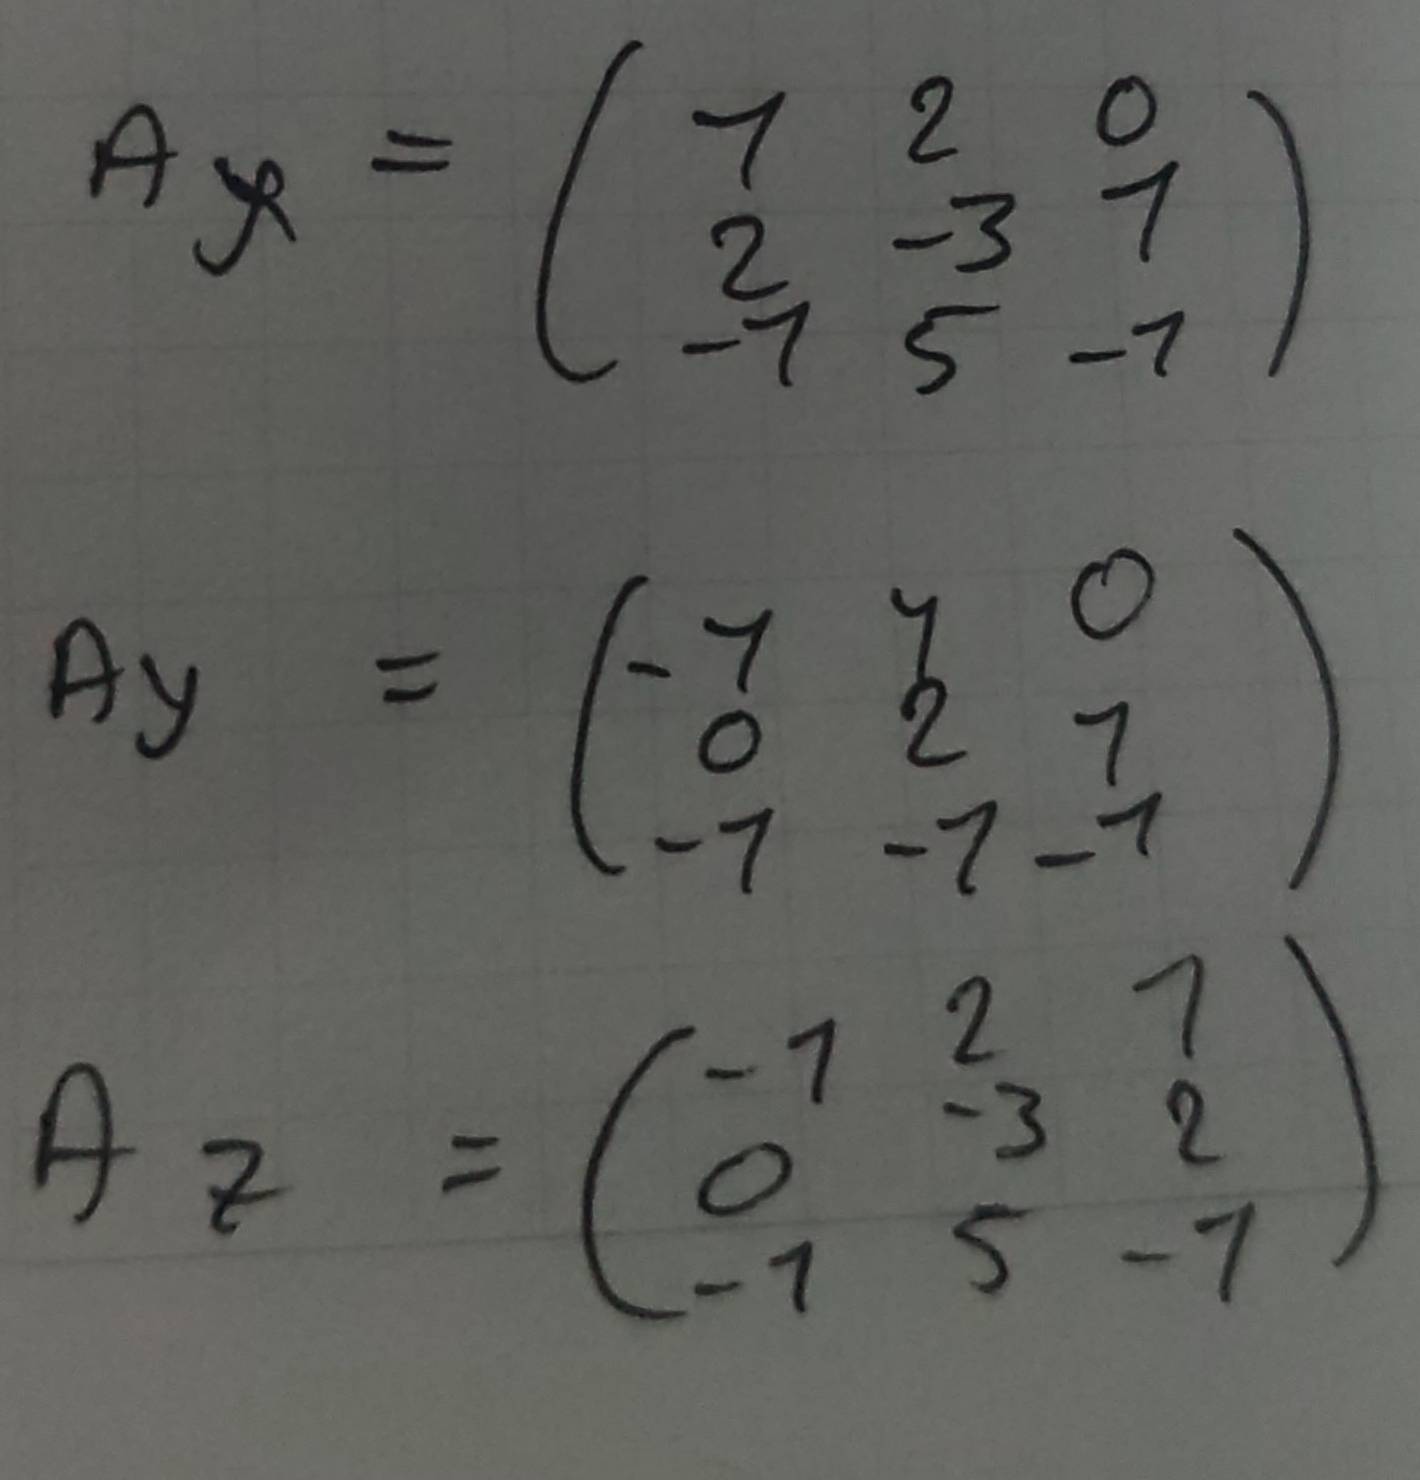 Ax = ( 1 2 0
2 -3 1
-1 5 -1 )
Ay = ( -1 1 0
0 2 1
-1 -1 -1 )
Az = ( -1 2 1
0 -3 2
-1 5 -1 )